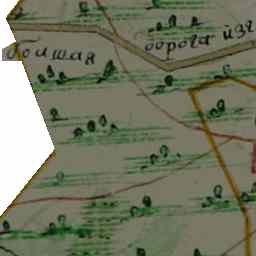 болшая
дорога изг